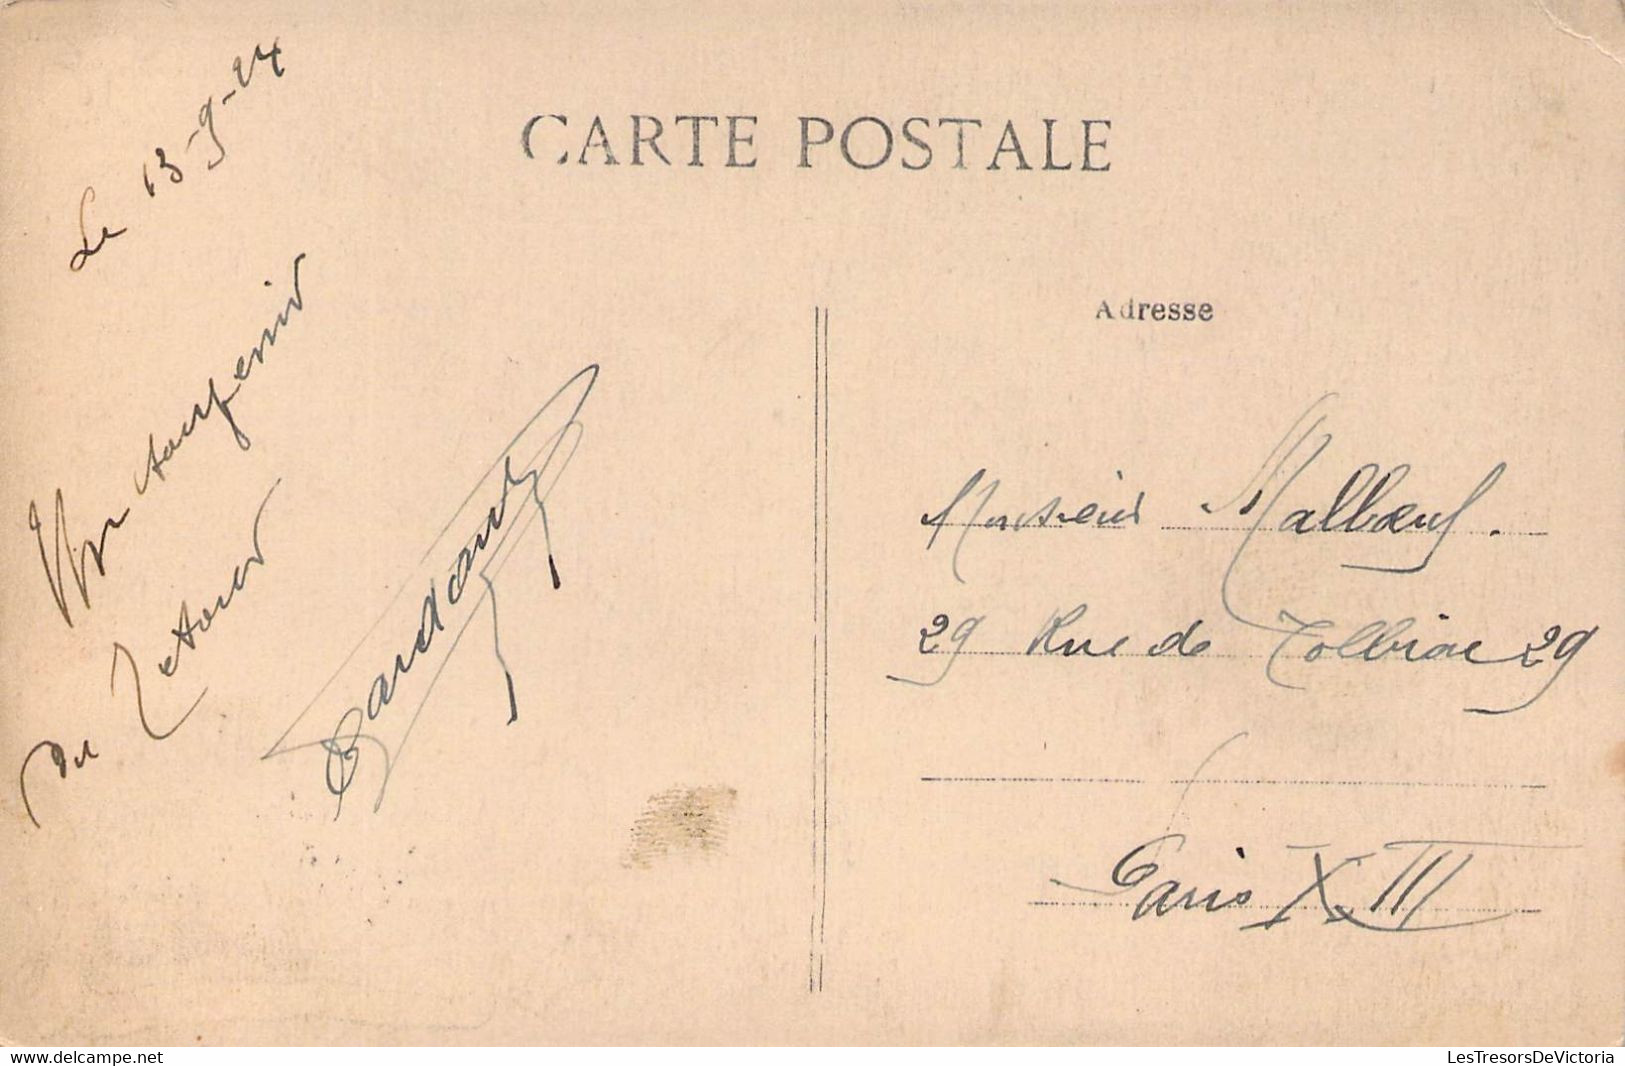 CARTE POSTALE
Le 13-9-24
Mon souvenir
du retour
Adresse
Monsieur Malbœuf.
29 Rue de Tolbiac 29
Paris XIII
www.delcampe.net
LesTresorsDeVictoria